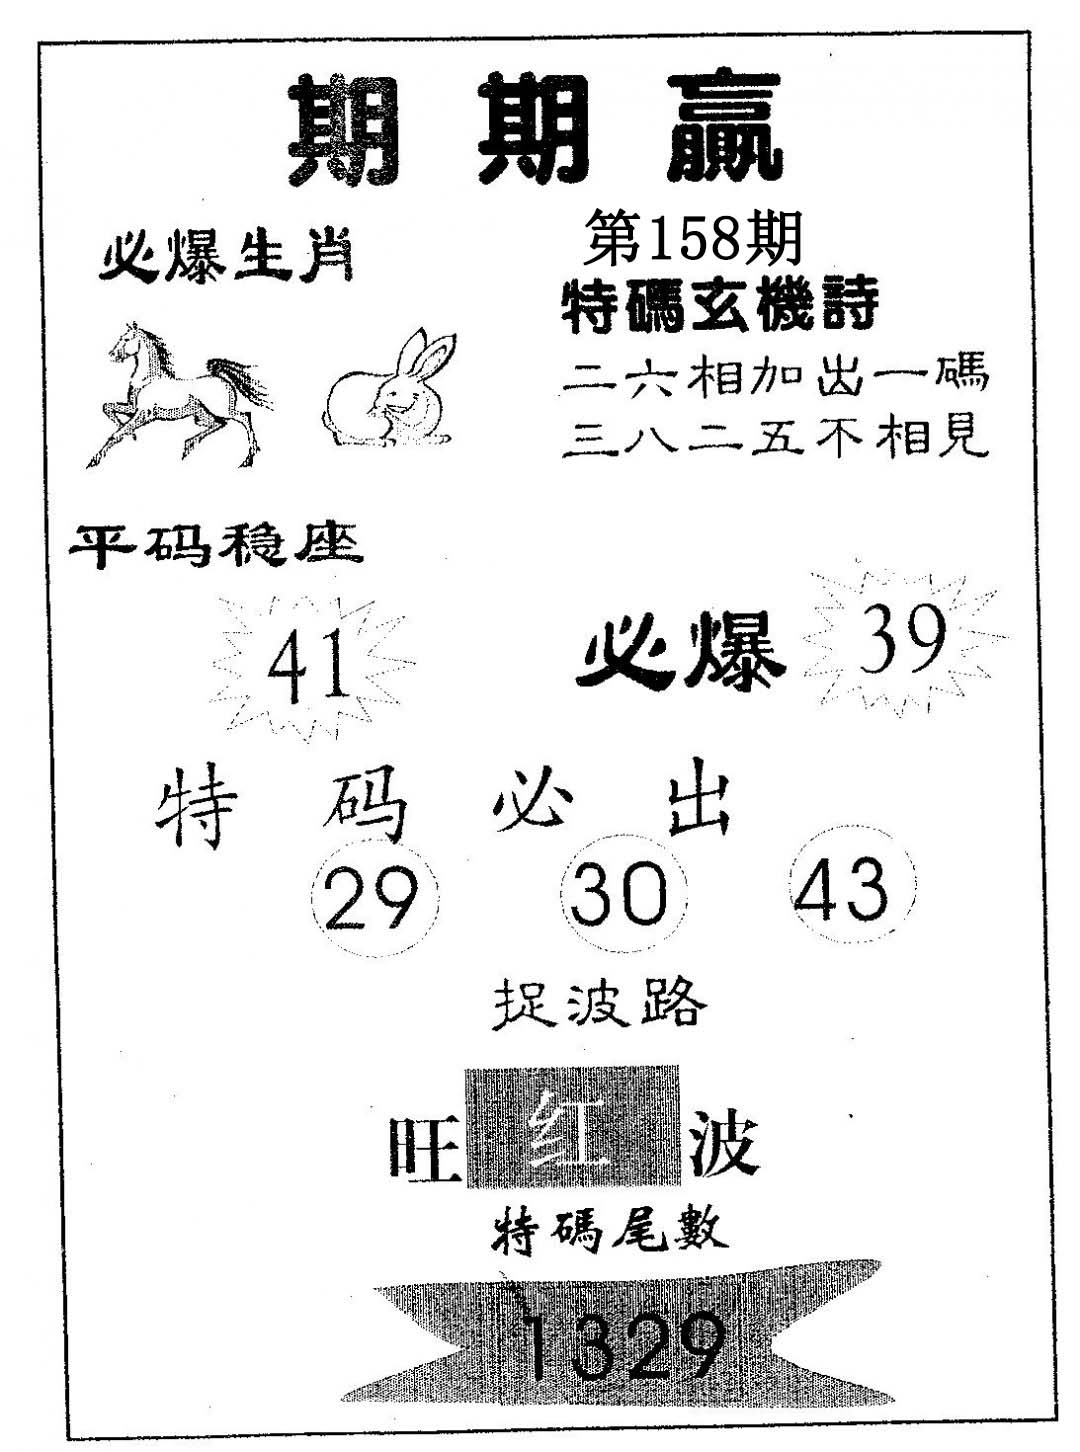 期期赢
必爆生肖
第158期
特碼玄機詩
二六相加出一碼
三八二五不相見
平码稳座
41
必爆 39
特码必出
29 30 43
捉波路
旺红波
特碼尾數
1329